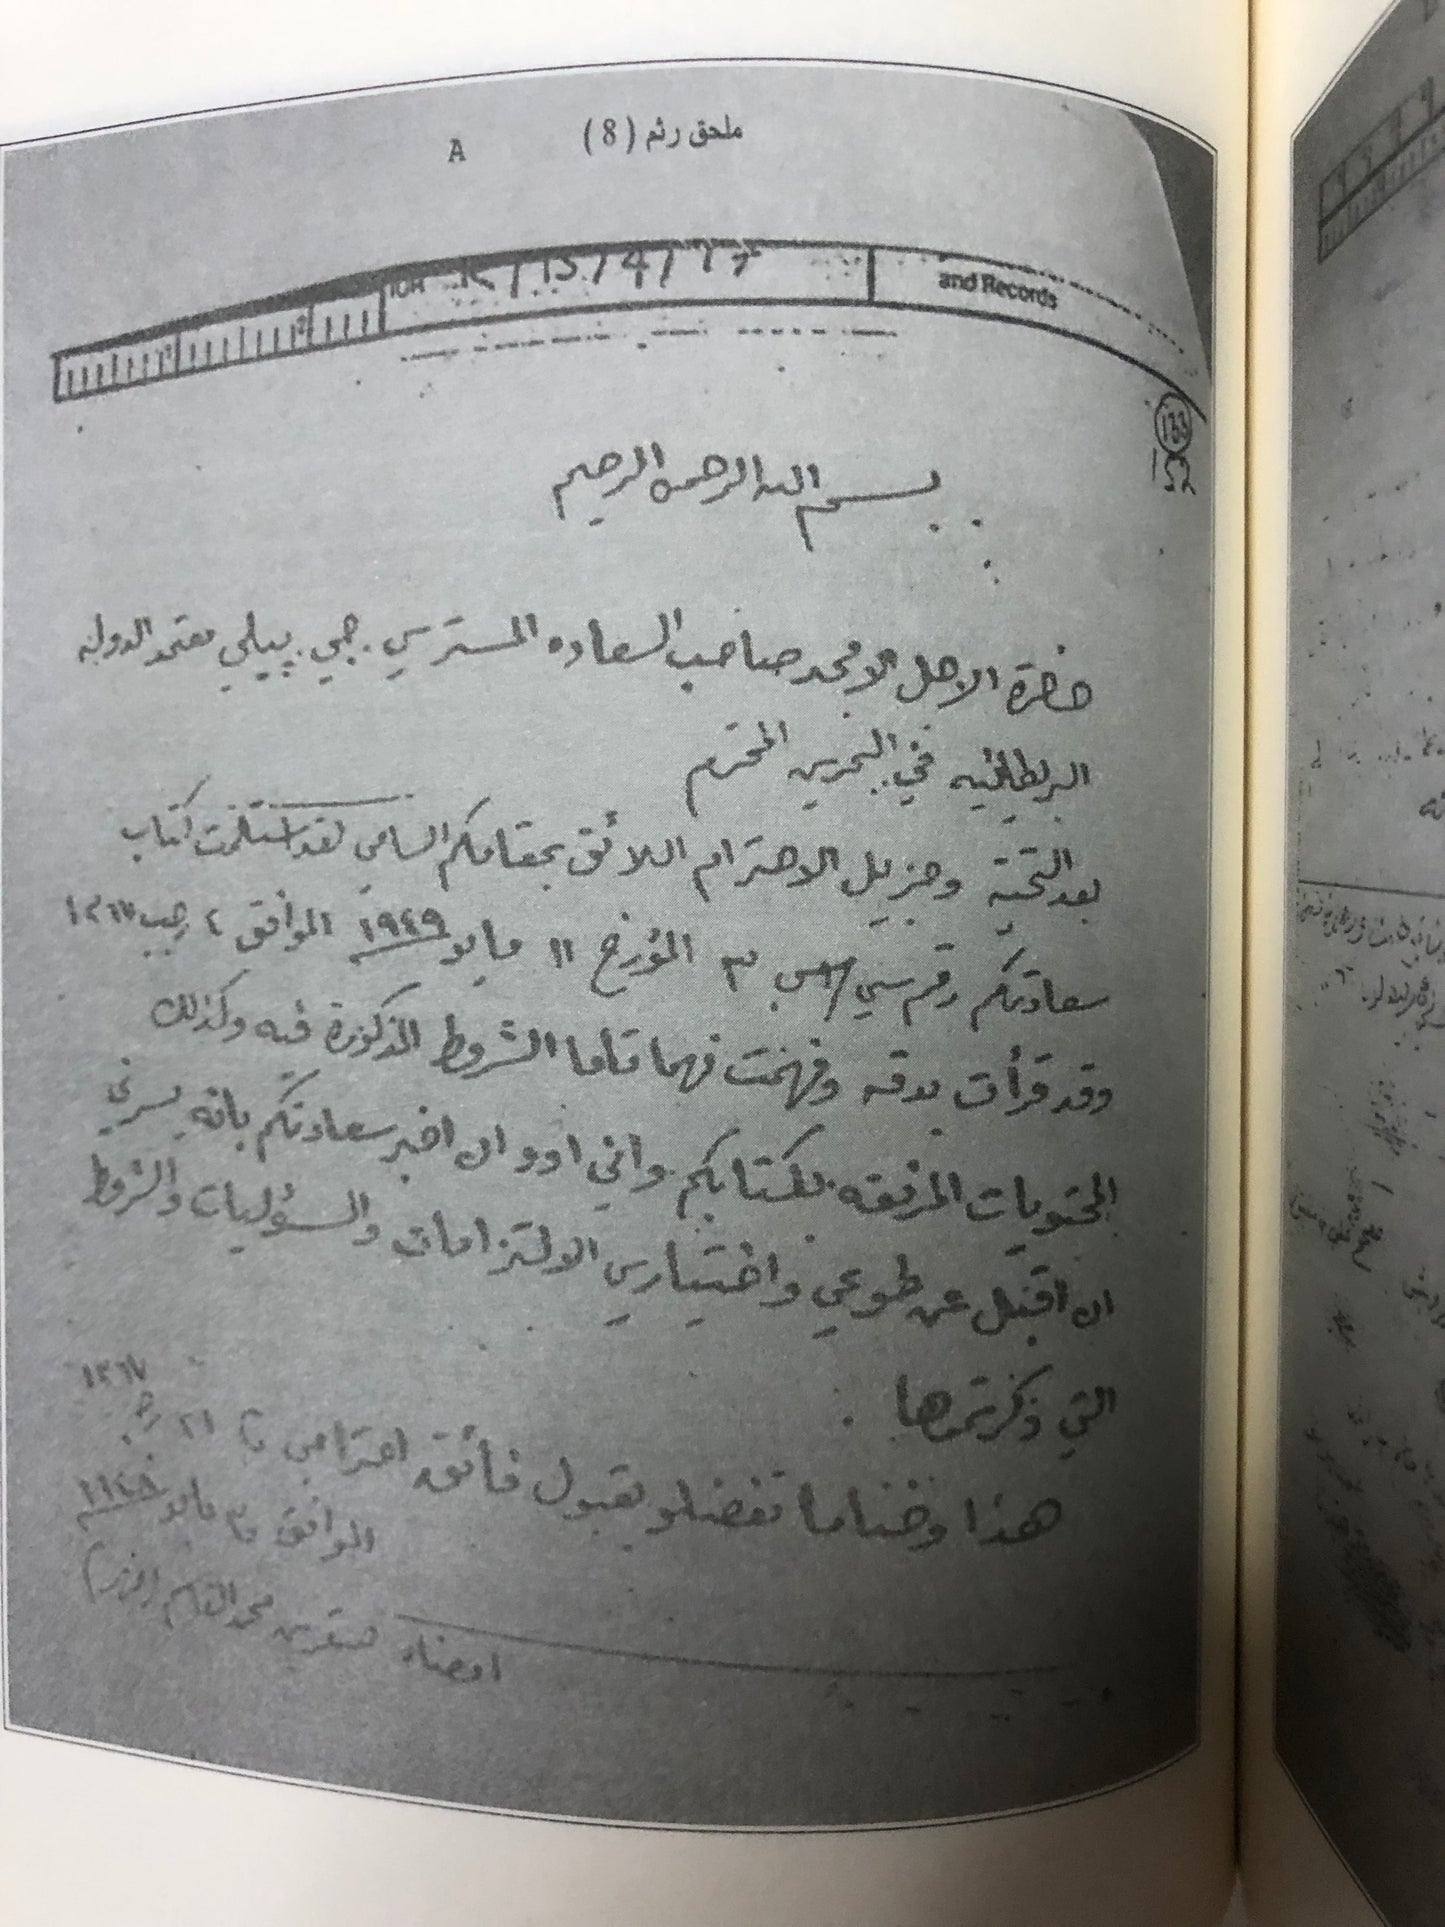 ملحق رقم (8) A
and Records
133
152
بسم الله الرحمن الرحيم
حضرة الاجل الامجد صاحب السعاده المستر سي. جي. پيلي معتمد الدوله
البريطانيه في البحرين المحترم
بعد التحية وجزيل الاحترام اللائق بمقامكم السامي لقد استلمت كتاب
سعادتكم رقم سي المؤرخ ١١ مايو ١٩٤٩ الموافق رجب
وقد قرأت بدقه وفهمت فهما تاما الشروط المذكورة فيه وكذلك
المحتويات المرفقه بكتابكم واني اود ان اخبر سعادتكم بانه يسرني
ان اقبل عن طوعي واختياري الالتزامات والمسؤليات والشروط
التي ذكرتموها .
هذا وختاما تفضلو بقبول فائق احترامي
الموافق مايو
امضاء صقر بن محمد القاسمي